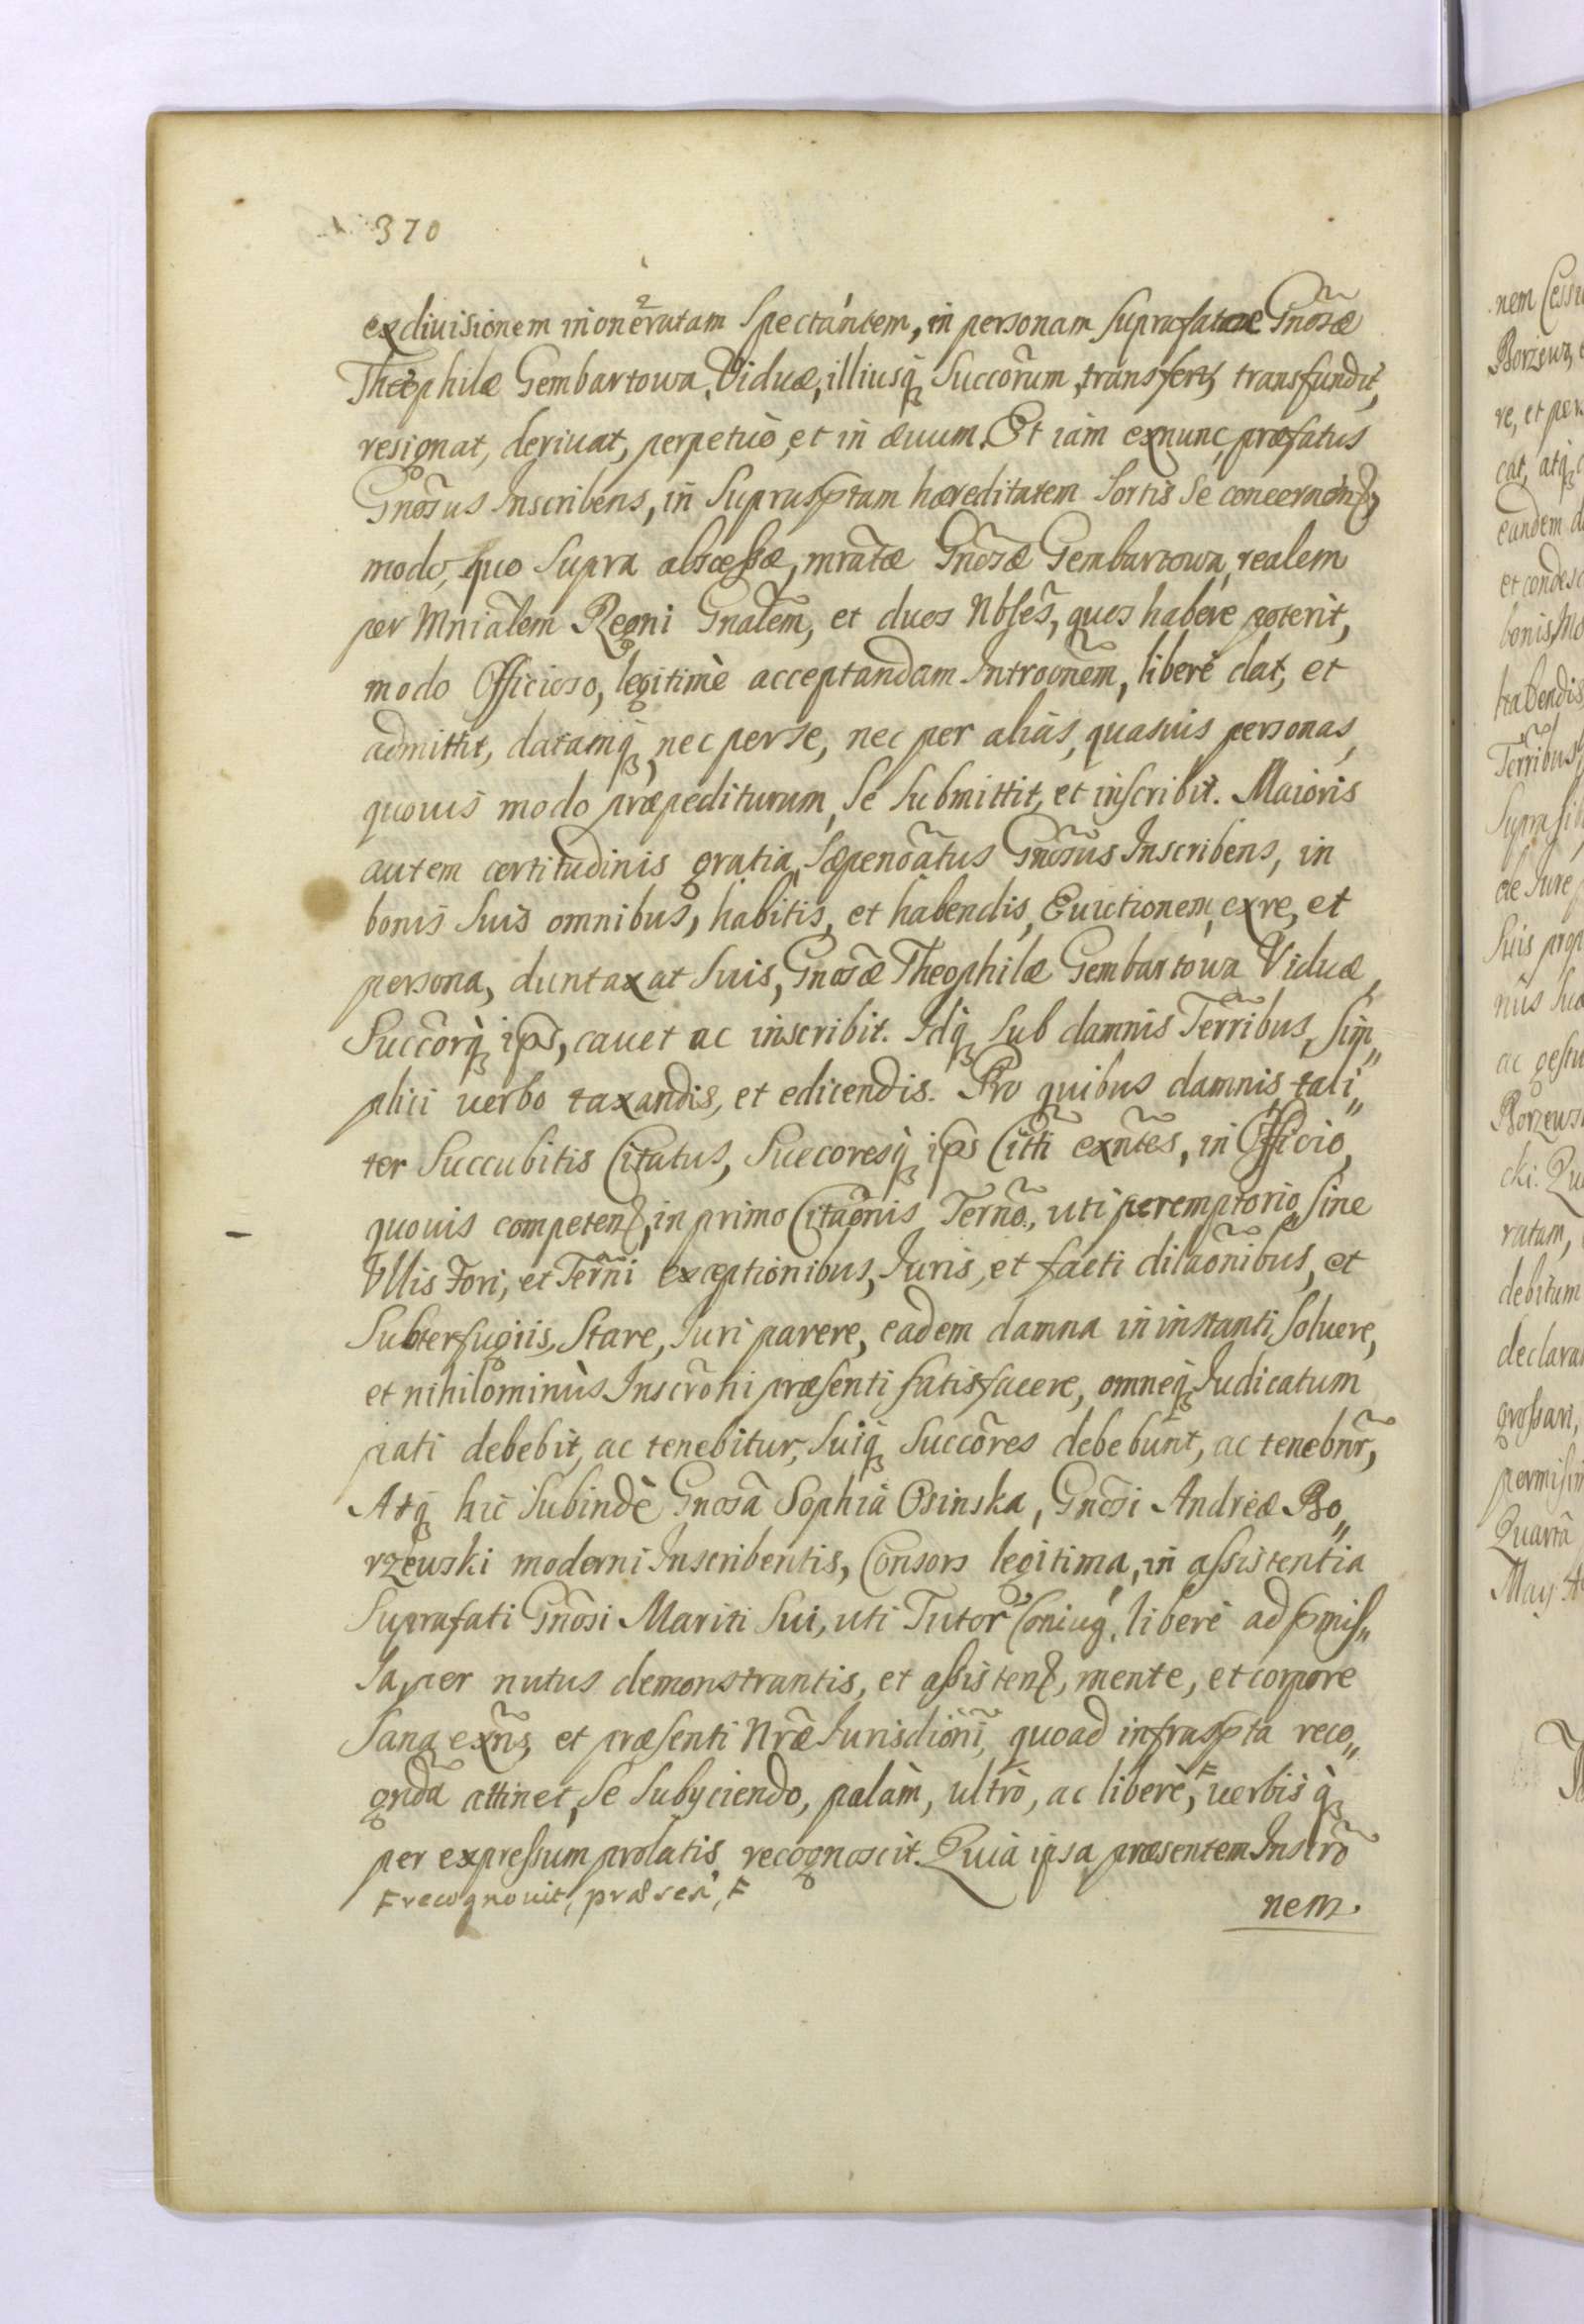 370
exdiuisionem inoneratam Spectantem, in personam Suprafatae Gnõsæ
Theophilæ Gembartowa, Viduæ, illiusq̃ Succõrum, transfert, transfundit,
resignat, deriuat, perpetuò, et in æuum. Et iam exnunc, præfatus
Gnõsus Inscribens, in Suprasptam hæreditatem Sortis Se concernen͠,
modo, quo Supra abscessæ, mrãtæ Gnõsæ Gembartowa, realem
per Mniãlem Regni Gnãlem, et duos Nbles̃, quos habere poterit,
modo Officioso, legitimè acceptandam Introõnem, liberè dat, et
admittit, datamq̃, nec perse, nec per aliàs, quasuis personas,
quouis modo præpediturum, Se Submittit, et inscribit. Maioris
autem certitudinis gratia, Sæpenoãtus Gnõsus Inscribens, in
bonis Suis omnibus, habitis, et habendis, Euictionem, exre, et
persona, duntaxat Suis, Gnosæ̃ Theophilæ Gembartowa Viduæ,
Succõrq̃ ips, cauet ac inscribit. Idq̃ Sub damnis Ter̃ribus, Sim„
plici uerbo taxandis, et edicendis. Pro quibus damnis, tali„
ter Succubitis Citatus, Succoresq̃ ips Citt̃i exñtes, in Officio,
quouis competen͠, in primo Citaõnis Ter̃no, uti peremptorio, Sine
Vllis Fori, et Ter̃ni exceptionibus, Juris, et facti dilaõnibus, et
Subterfugiis, Stare, Juri parere, eadem damna in instanti Soluere,
et nihilominùs Inscrõni præsenti Satisfacere, omneq̃ Judicatum
pati debebit, ac tenebitur, Suiq̃ Succõres debebunt, ac tenebnr̃,
Atq̃ hic Subindè Gnosã Sophia Osinska, Gnõsi Andreæ Bo„
rzewski moderni Inscribentis, Consors legitima, in assistentia
Suprafati Gnõsi Mariti Sui, uti Tutor̃ Coniug, liberè ad pmis„
Sa, per nutus demonstrantis, et assisten͠, mente, et corpore
Sana exñs, et præsenti Nr̃æ Jurisdiõni, quoad infraspta reco„
gnd̃a attinet, Se Subyciendo, palàm, ultrò, ac liberè, F uerbisq̃
per expressum prolatis, recognoscit. Quia ipsa præsentem Inscrõ
F recognouit, prætereà, F
nem.